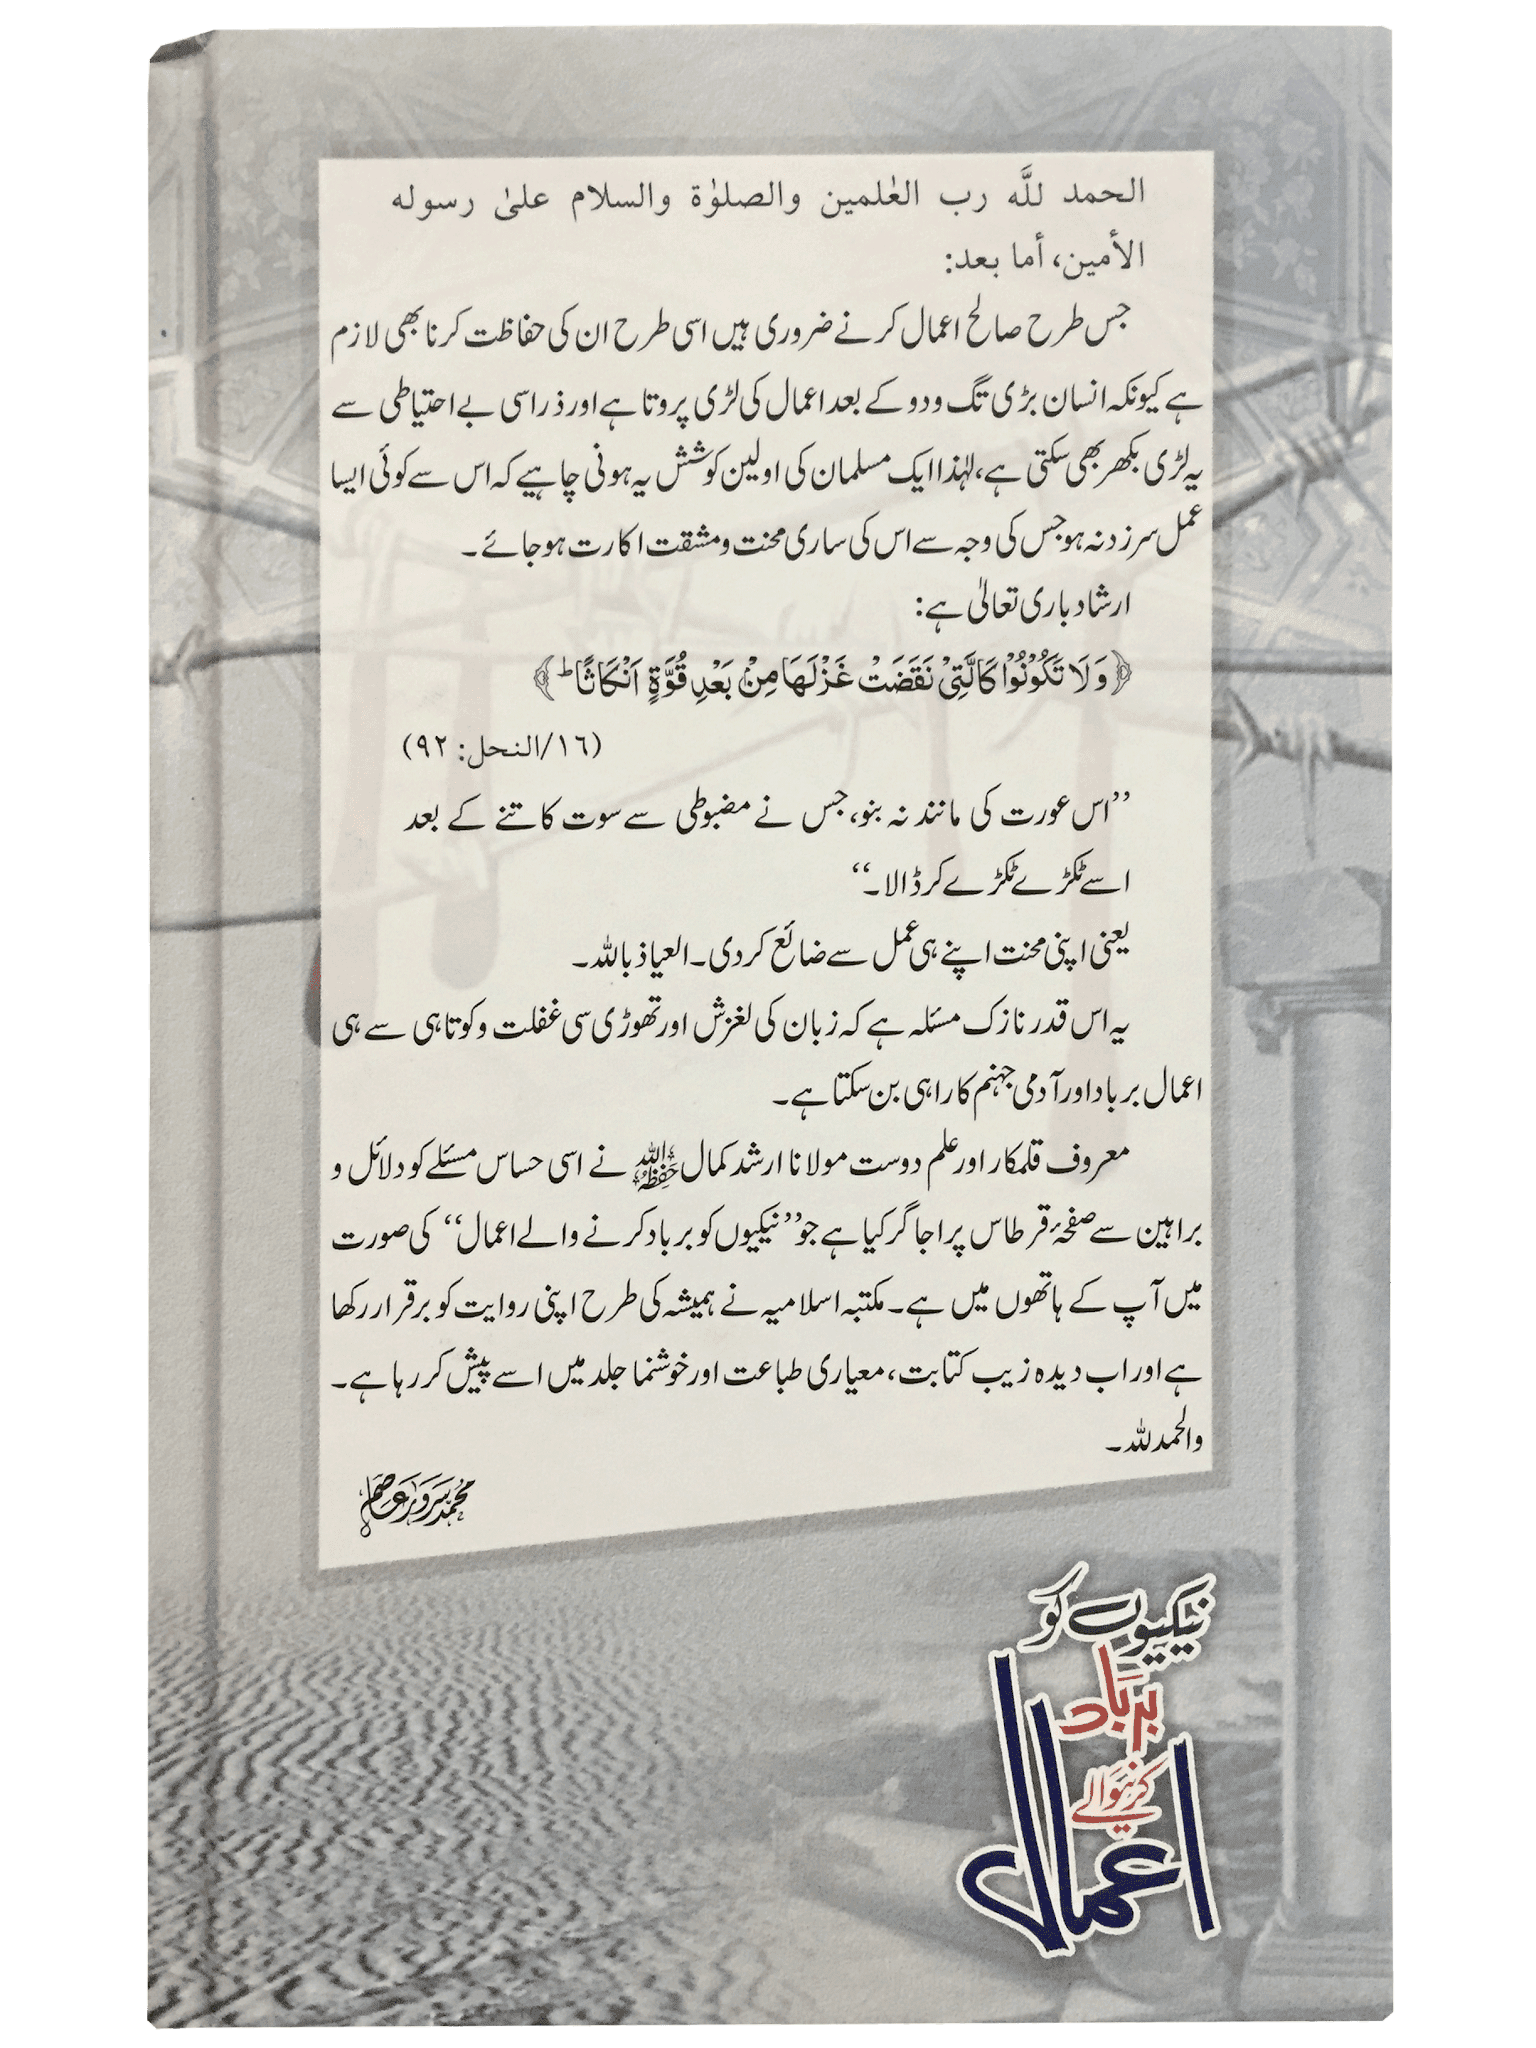 الحمد للَّه رب العٰلمین والصلوٰة والسلام علیٰ رسوله
الأمین، أما بعد:
جس طرح صالح اعمال کرنے ضروری ہیں اسی طرح ان کی حفاظت کرنا بھی لازم
ہے کیونکہ انسان بڑی تگ ودو کے بعد اعمال کی لڑی پروتا ہے اور ذرا سی بے احتیاطی سے
یہ لڑی بکھر بھی سکتی ہے، لہٰذا ایک مسلمان کی اولین کوشش یہ ہونی چاہیے کہ اس سے کوئی ایسا
عمل سرزد نہ ہو جس کی وجہ سے اس کی ساری محنت ومشقت اکارت ہو جائے۔
ارشاد باری تعالیٰ ہے:
﴿وَلَا تَكُوْنُوْا كَالَّتِيْ نَقَضَتْ غَزْلَهَا مِنْۢ بَعْدِ قُوَّةٍ اَنْكَاثًا ؕ﴾
(١٦/النحل: ٩٢)
’’اس عورت کی مانند نہ بنو، جس نے مضبوطی سے سوت کاتنے کے بعد
اسے ٹکڑے ٹکڑے کر ڈالا۔‘‘
یعنی اپنی محنت اپنے ہی عمل سے ضائع کر دی۔ العیاذ باللہ۔
یہ اس قدر نازک مسئلہ ہے کہ زبان کی لغزش اور تھوڑی سی غفلت وکوتاہی سے ہی
اعمال برباد اور آدمی جہنم کا راہی بن سکتا ہے۔
معروف قلمکار اور علم دوست مولانا ارشد کمال حفظہ اللہ نے اسی حساس مسئلے کو دلائل و
براہین سے صفحۂ قرطاس پر اجاگر کیا ہے جو ’’نیکیوں کو برباد کرنے والے اعمال‘‘ کی صورت
میں آپ کے ہاتھوں میں ہے۔ مکتبہ اسلامیہ نے ہمیشہ کی طرح اپنی روایت کو برقرار رکھا
ہے اور اب دیدہ زیب کتابت، معیاری طباعت اور خوشنما جلد میں اسے پیش کر رہا ہے۔
والحمدللہ۔
محمد سرور عاصم
نیکیوں کو
برباد
کرنیوالے
اعمال